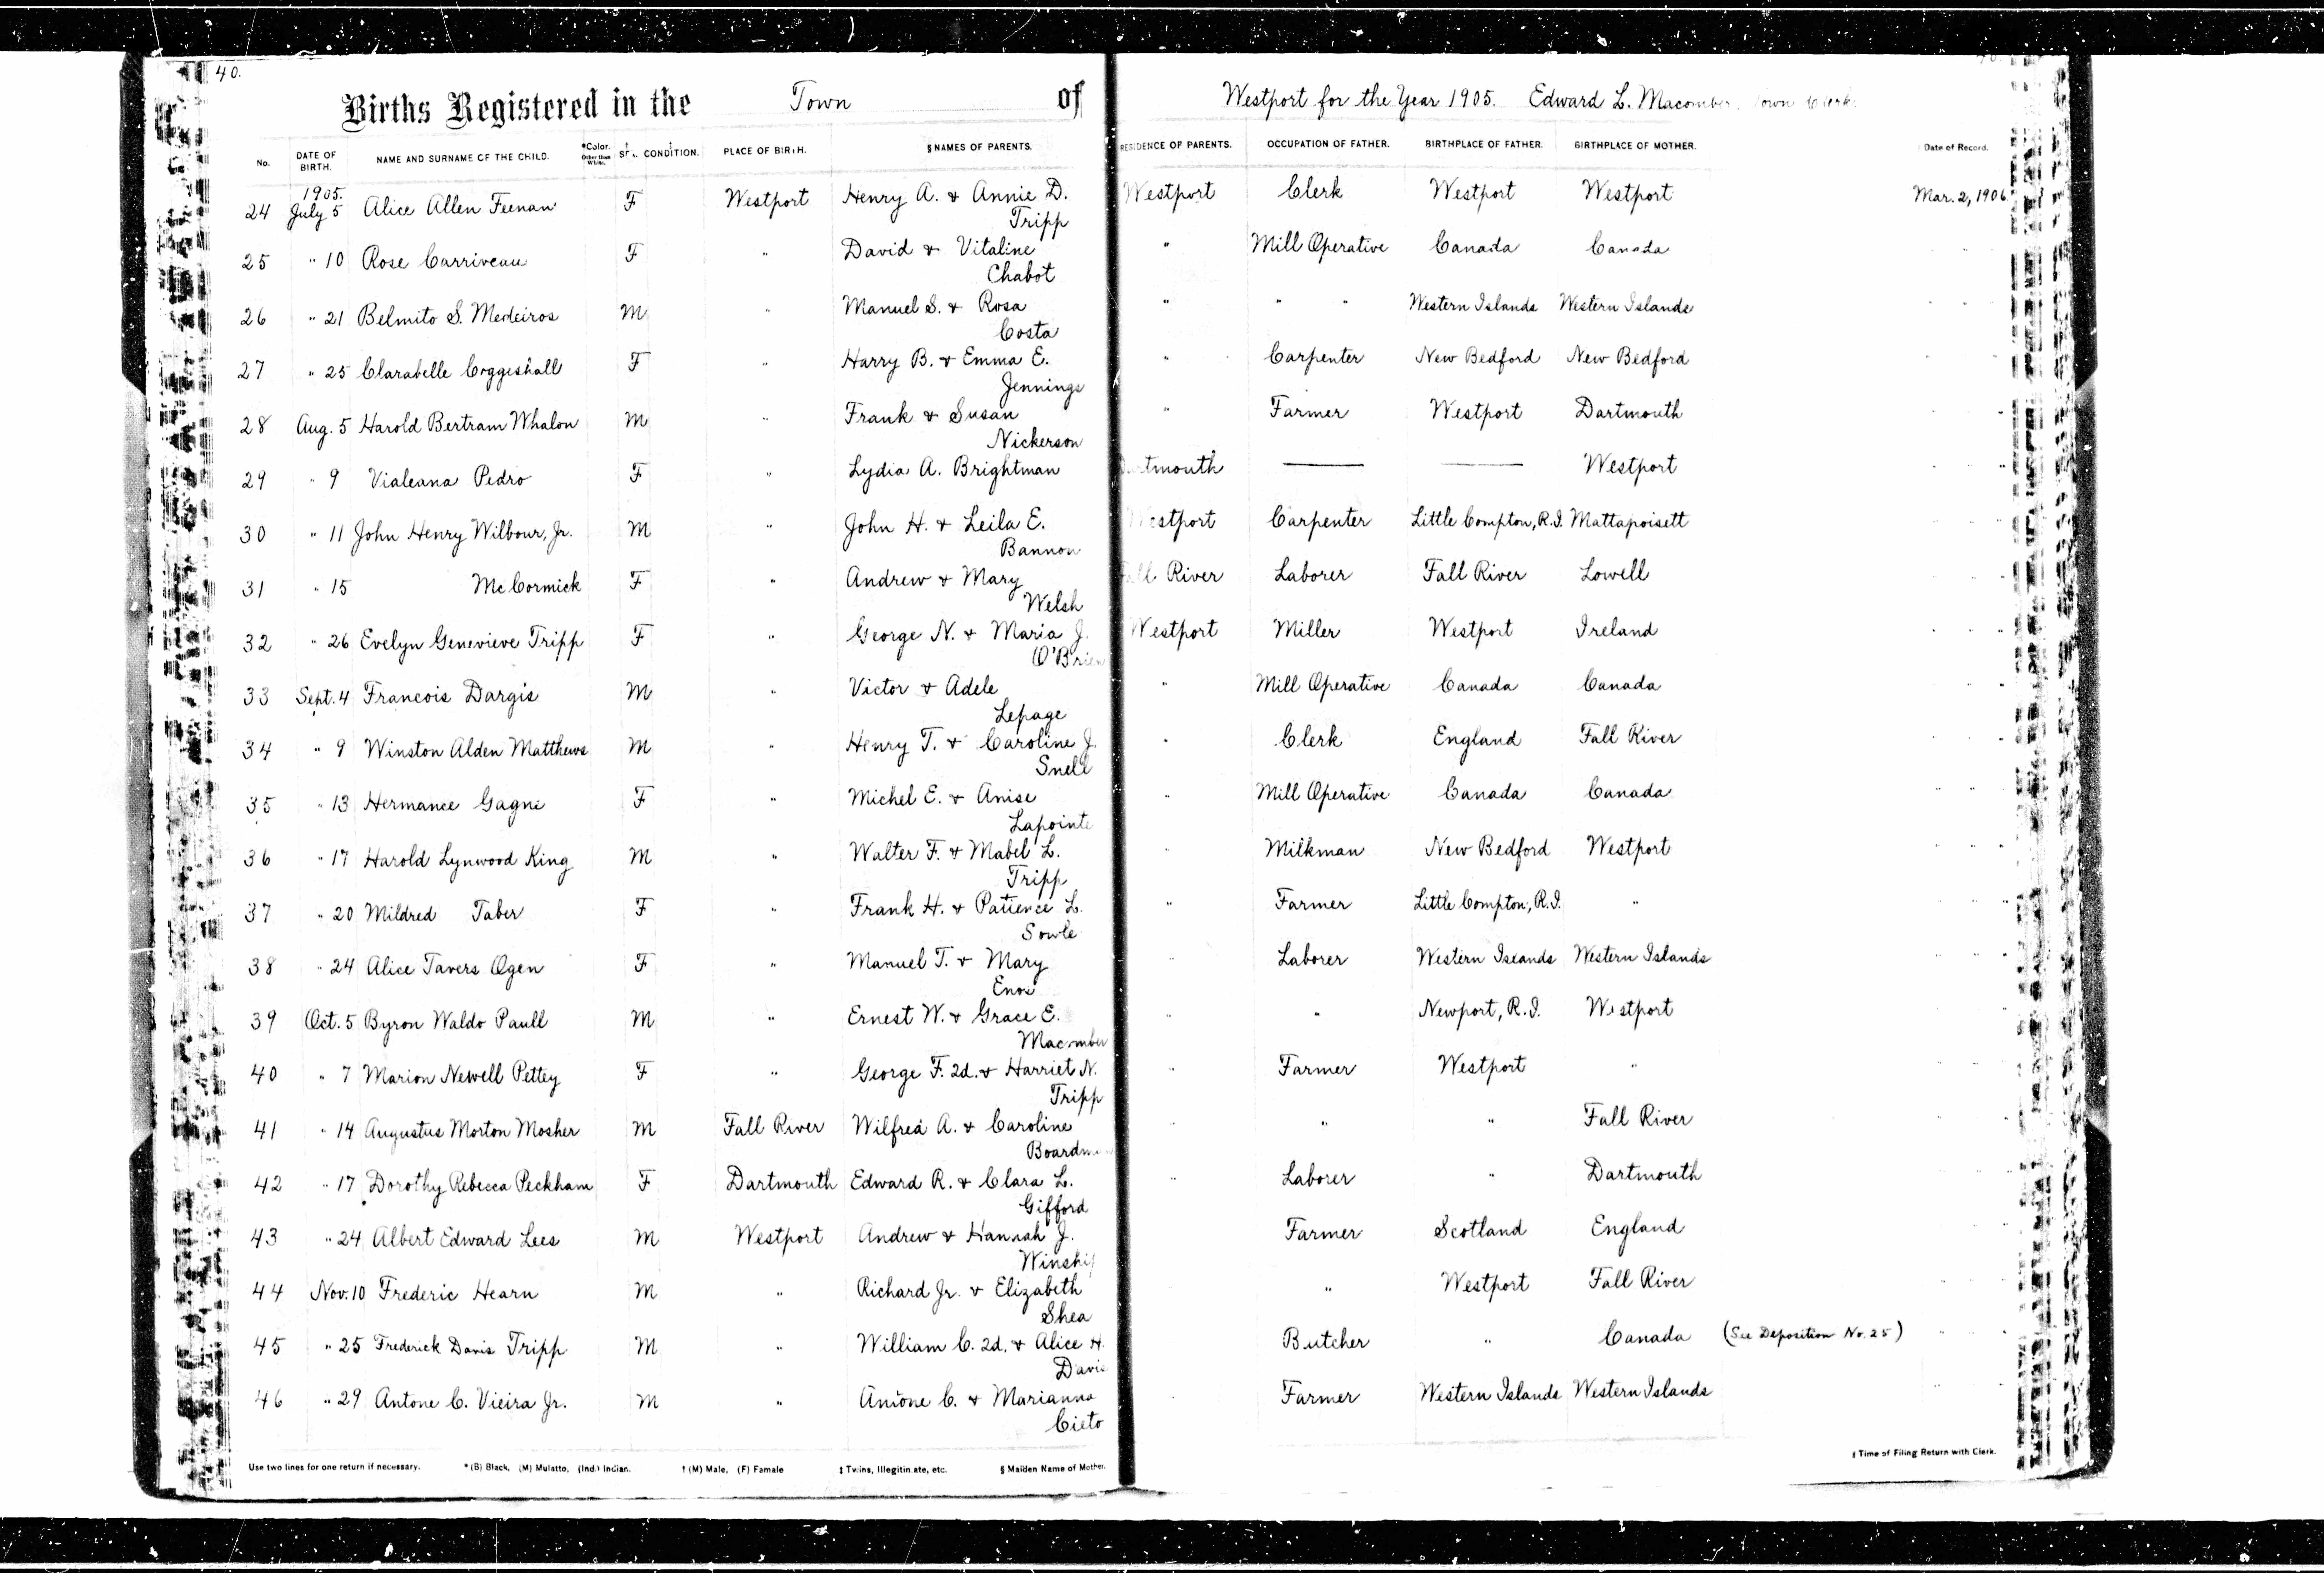 40.
Births Registered in the Town of Westport for the Year 1905. Edward L. Macomber, Town Clerk.
No. DATE OF BIRTH. NAME AND SURNAME OF THE CHILD. *Color. Other than White. SEX. CONDITION. PLACE OF BIRTH. §NAMES OF PARENTS. RESIDENCE OF PARENTS. OCCUPATION OF FATHER. BIRTHPLACE OF FATHER. BIRTHPLACE OF MOTHER. Date of Record.
1905.
24 July 5 Alice Allen Feenan F Westport Henry A. & Annie D. Westport Clerk Westport Westport Mar. 2, 1906
Tripp
25 " 10 Rose Carriveau F " David & Vitaline " Mill Operative Canada Canada " "
Chabot
26 " 21 Belmito S. Medeiros M " Manuel S. & Rosa " " " Western Islands Western Islands " "
Costa
27 " 25 Clarabelle Coggeshall F " Harry B. & Emma E. " Carpenter New Bedford New Bedford " "
Jennings
28 Aug. 5 Harold Bertram Whalon M " Frank & Susan " Farmer Westport Dartmouth " "
Nickerson
29 " 9 Vialeana Pedro F " Lydia A. Brightman Dartmouth — — Westport " "
30 " 11 John Henry Wilbour, Jr. M " John H. & Leila E. Westport Carpenter Little Compton, R.I. Mattapoisett " "
Bannon
31 " 15 McCormick F " Andrew & Mary Fall River Laborer Fall River Lowell " "
Welsh
32 " 26 Evelyn Genevieve Tripp F " George N. & Maria J. Westport Miller Westport Ireland " "
O'Brien
33 Sept. 4 Francois Dargis M " Victor & Adele " Mill Operative Canada Canada " "
Lepage
34 " 9 Winston Alden Matthews M " Henry T. & Caroline J. " Clerk England Fall River " "
Snell
35 " 13 Hermance Gagne F " Michel E. & Anise " Mill Operative Canada Canada " "
Lapointe
36 " 17 Harold Lynwood King M " Walter F. & Mabel L. " Milkman New Bedford Westport " "
Tripp
37 " 20 Mildred Taber F " Frank H. & Patience L. " Farmer Little Compton, R.I. " " "
Sowle
38 " 24 Alice Tavers Ogen F " Manuel T. & Mary " Laborer Western Islands Western Islands " "
Enos
39 Oct. 5 Byron Waldo Paull M " Ernest W. & Grace E. " " Newport, R.I. Westport " "
Macomber
40 " 7 Marion Newell Pettey F " George F. 2d. & Harriet N. " Farmer Westport " " "
Tripp
41 " 14 Augustus Morton Mosher M Fall River Wilfred A. & Caroline " " " Fall River " "
Boardman
42 " 17 Dorothy Rebecca Peckham F Dartmouth Edward R. & Clara L. " Laborer " Dartmouth " "
Gifford
43 " 24 Albert Edward Lees M Westport Andrew & Hannah J. Farmer Scotland England
Winship
44 Nov. 10 Frederic Hearn M " Richard Jr. & Elizabeth " Westport Fall River " "
Shea
45 " 25 Frederick Davis Tripp M " William C. 2d. & Alice H. Butcher " Canada (See Deposition No. 25) " "
Davis
46 " 29 Antone C. Vieira Jr. M " Antone C. & Marianna Farmer Western Islands Western Islands " "
Cieto
Use two lines for one return if necessary. *(B) Black, (M) Mulatto, (Ind.) Indian. †(M) Male, (F) Female ‡ Twins, Illegitimate, etc. § Maiden Name of Mother. ‖ Time of Filing Return with Clerk.